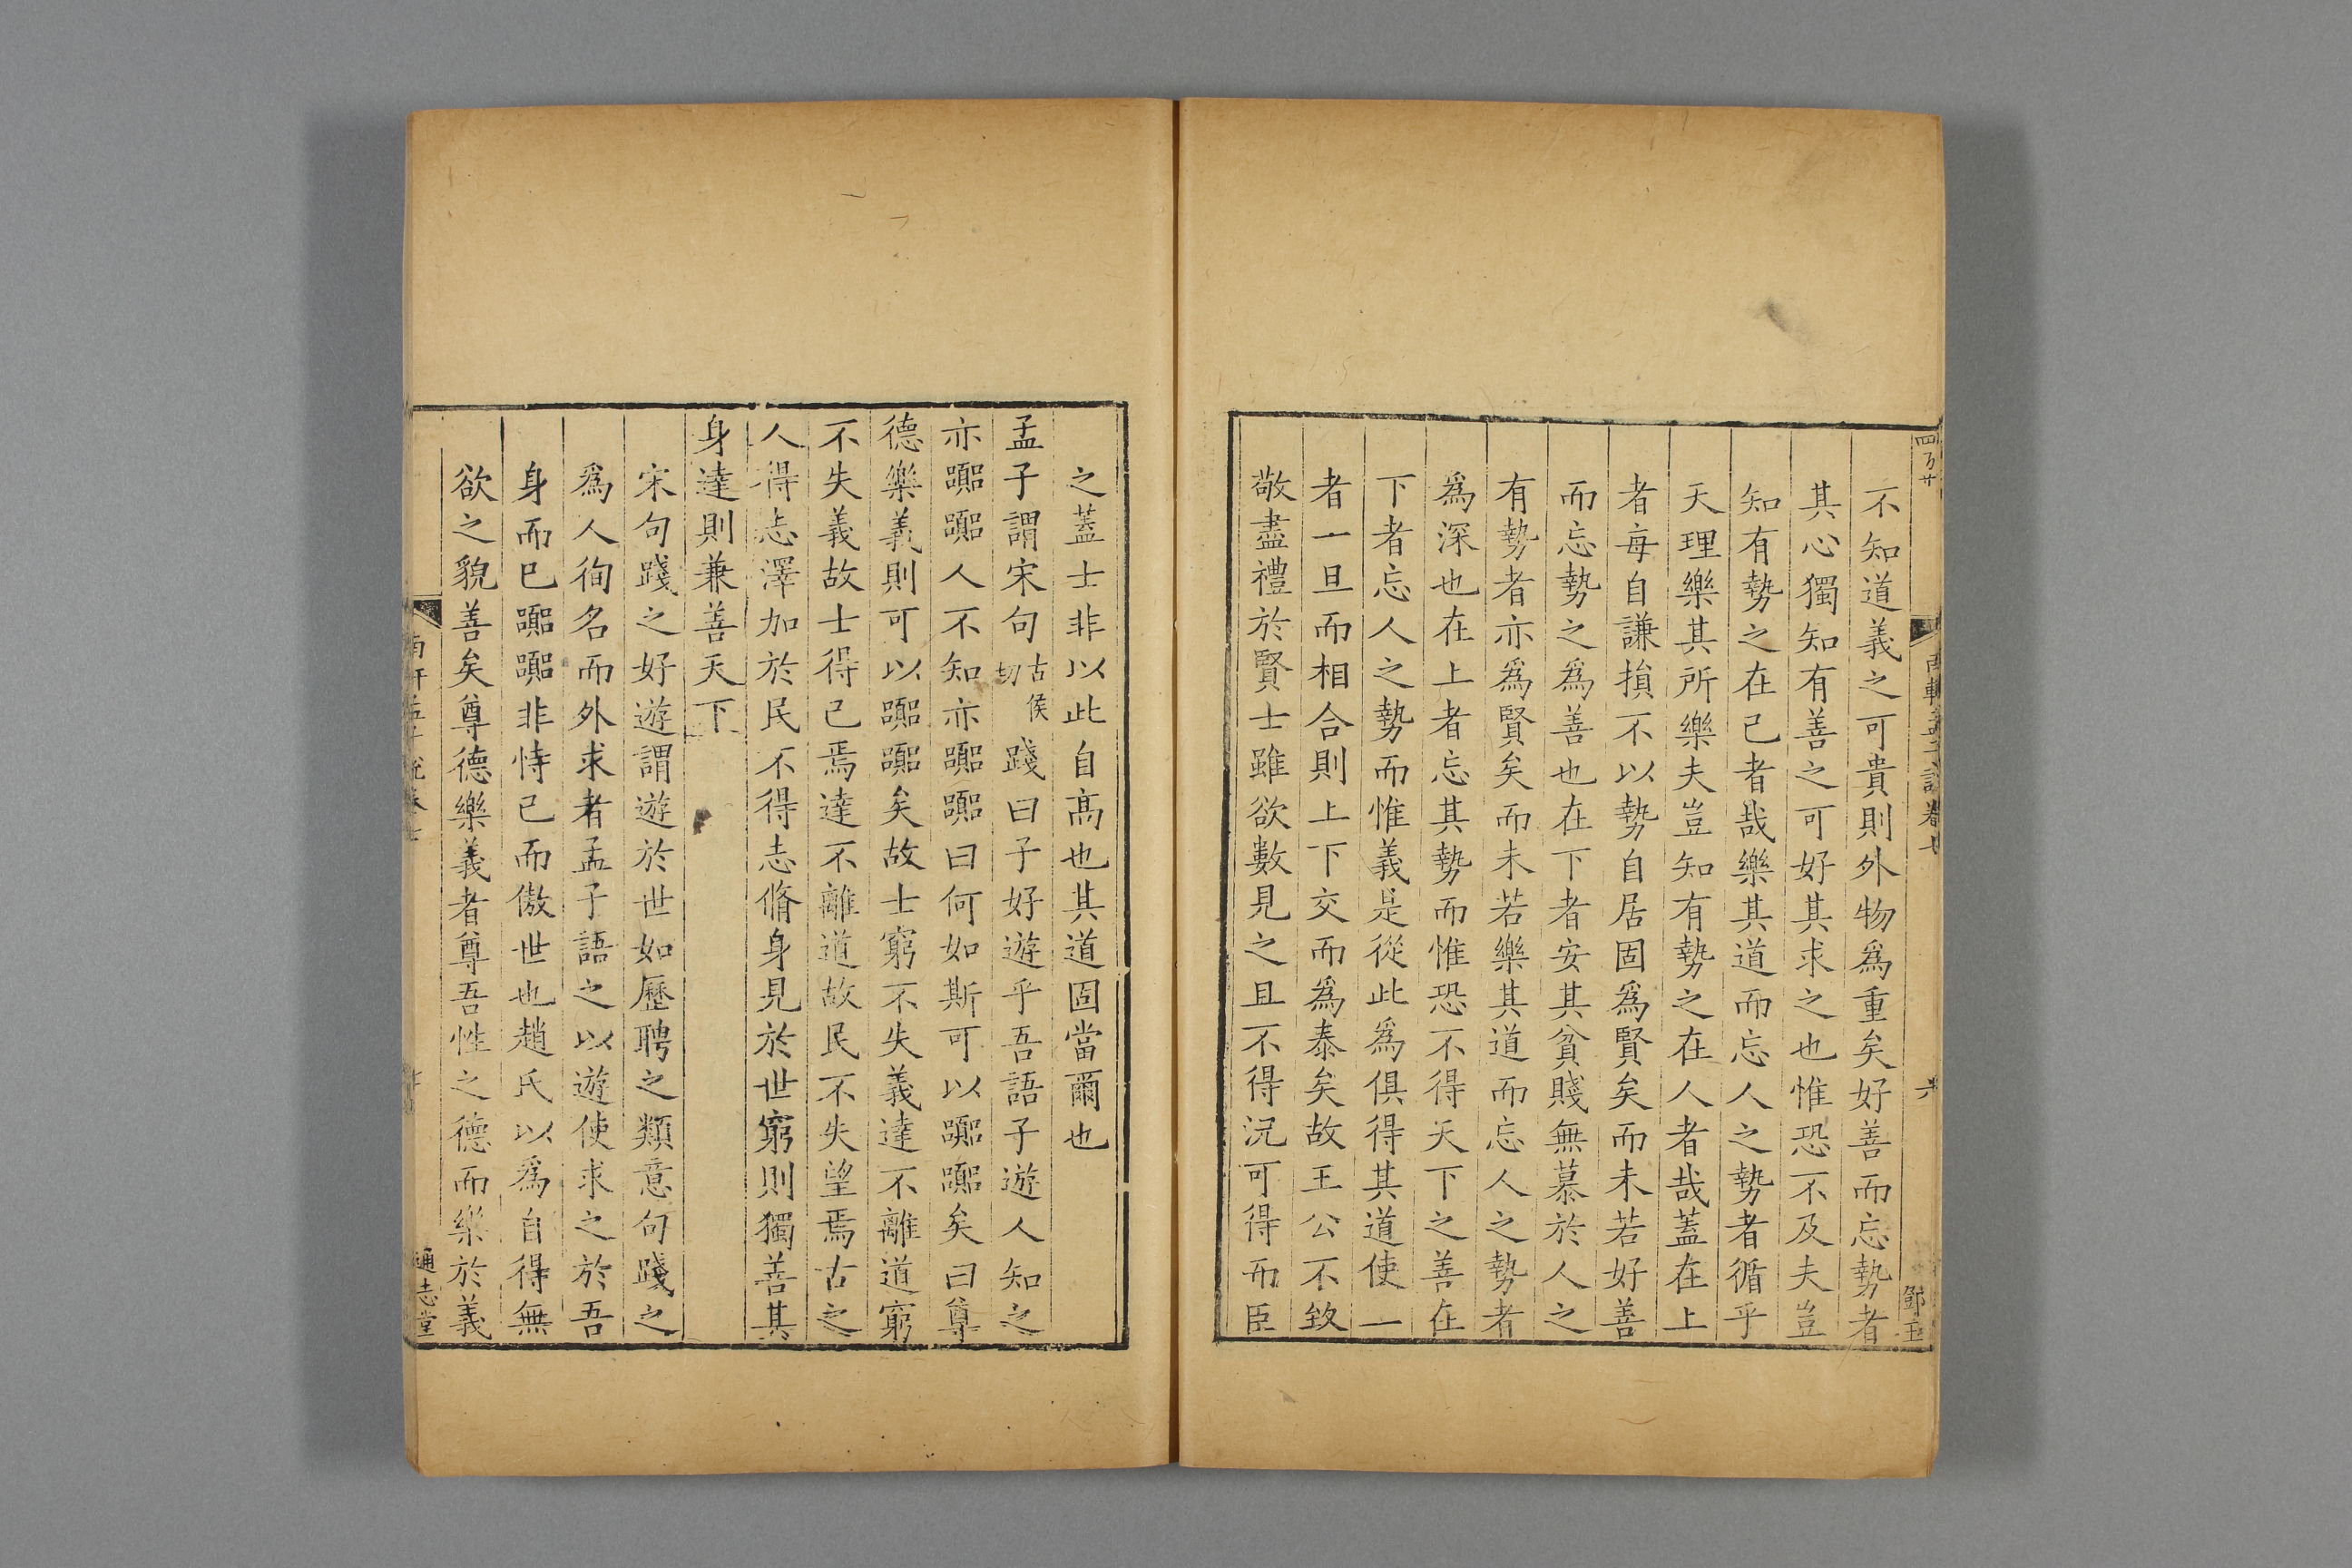 不知道義之可貴則外物爲重矣好善而忘勢者
其心獨知有善之可好其求之也惟恐不及夫豈
知有勢之在己者哉樂其道而忘人之勢者循乎
天理樂其所樂夫豈知有勢之在人者哉蓋在上
者每自謙損不以勢自居固爲賢矣而未若好善
而忘勢之爲善也在下者安其貧賤無慕於人之
有勢者亦爲賢矣而未若樂其道而忘人之勢者
爲深也在上者忘其勢而惟恐不得天下之善在
下者忘人之勢而惟義是從此爲俱得其道使一
者一旦而相合則上下交而爲泰矣故王公不致
敬盡禮於賢士雖欲數見之且不得況可得而臣
之蓋士非以此自高也其道固當爾也
孟子謂宋句古侯切踐曰子好遊乎吾語子遊人知之
亦囂囂人不知亦囂囂曰何如斯可以囂囂矣曰尊
德樂義則可以囂囂矣故士窮不失義達不離道窮
不失義故士得己焉達不離道故民不失望焉古之
人得志澤加於民不得志脩身見於世窮則獨善其
身達則兼善天下
宋句踐之好遊謂遊於世如歷聘之類意句踐之
爲人徇名而外求者孟子語之以遊使求之於吾
身而已囂囂非恃己而傲世也趙氏以爲自得無
欲之貌善矣尊德樂義者尊吾性之德而樂於義
通志堂